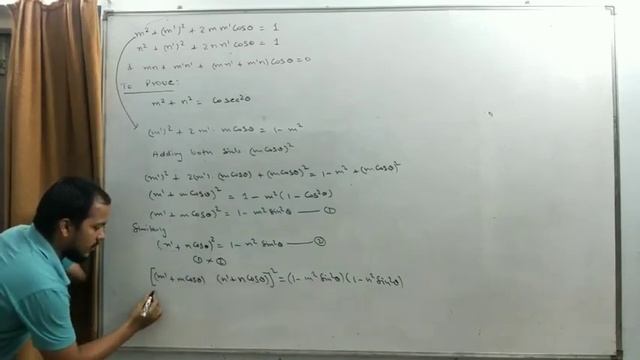 m² + (m')² + 2 m m' cosθ = 1
n² + (n')² + 2 n n' cosθ = 1
& mn + m'n' + (mn' + m'n) cosθ = 0
To Prove:
m² + n² = cosec²θ
(m')² + 2m'. m cosθ = 1 - m²
Adding both side (m cosθ)²
(m')² + 2(m') (m cosθ) + (m cosθ)² = 1 - m² + (m cosθ)²
(m' + m cosθ)² = 1 - m² (1 - cos²θ)
(m' + m cosθ)² = 1 - m² sin²θ —— ①
Similarly
(n' + n cosθ)² = 1 - n² sin²θ —— ②
① × ②
[(m' + m cosθ) (n' + n cosθ)]² = (1 - m² sin²θ) (1 - n² sin²θ)